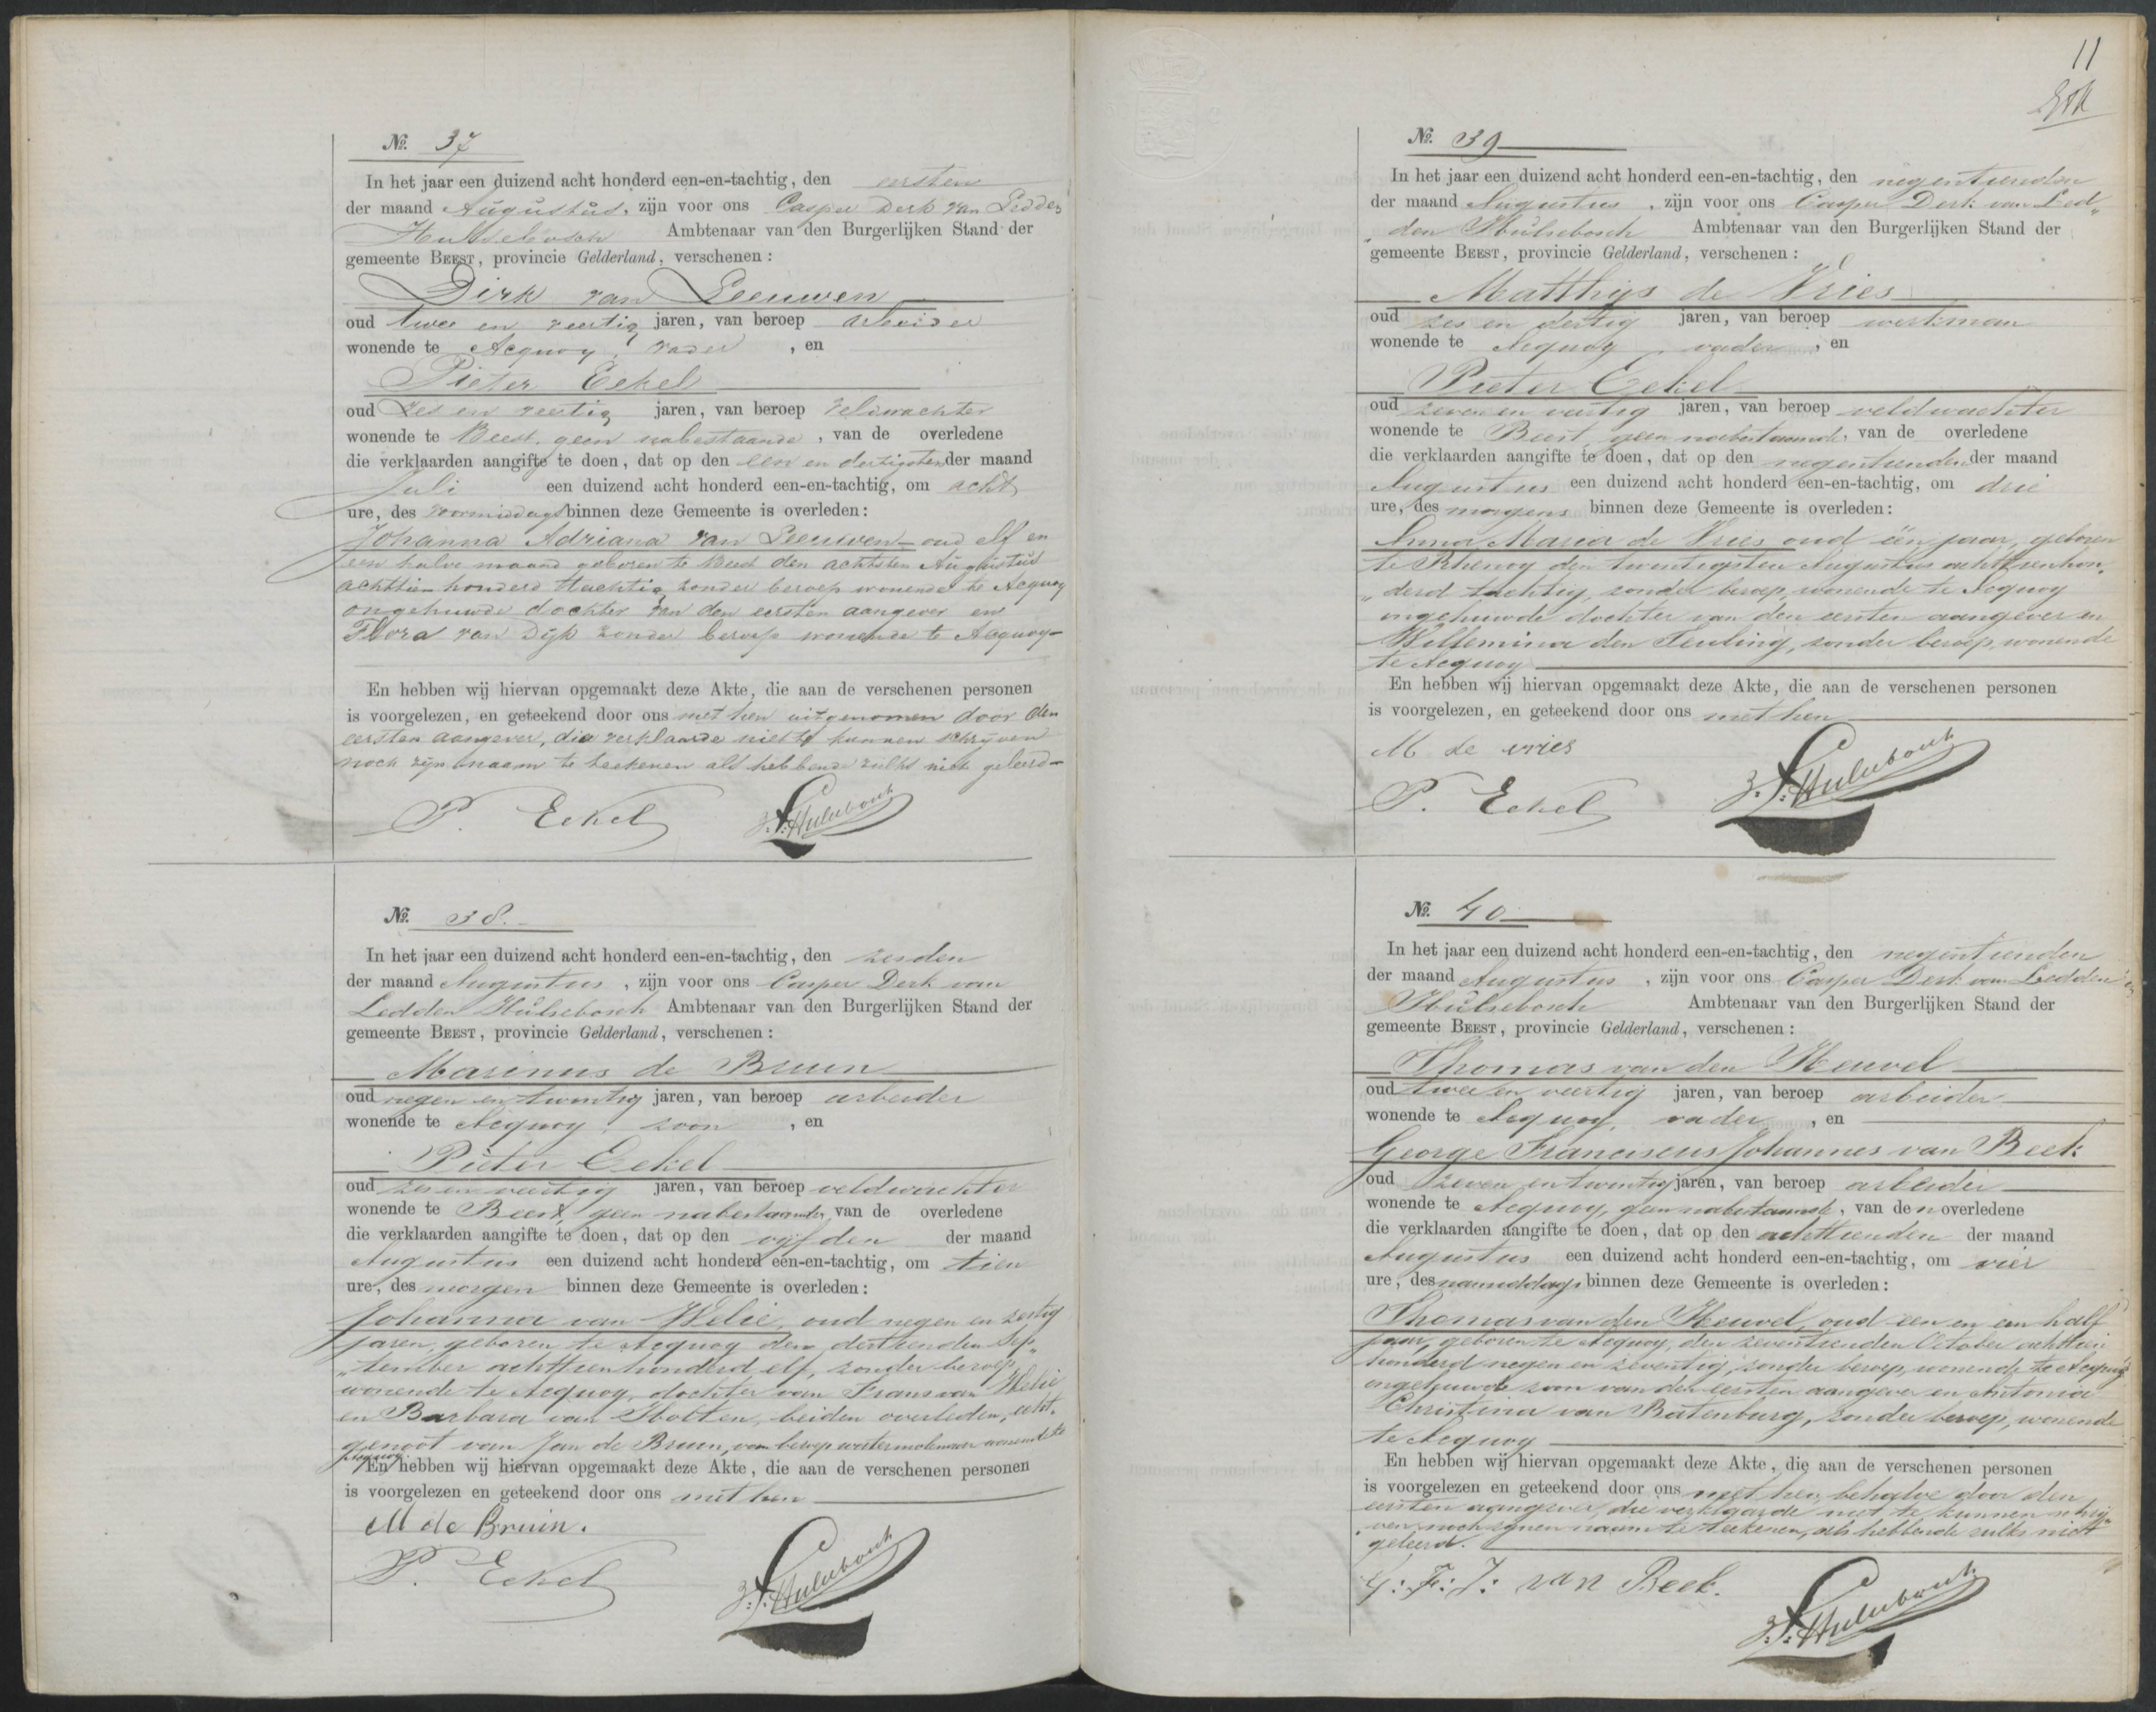 No. 37
In het jaar een duizend acht honderd een-en-tachtig, den eersten
der maand Augustus, zijn voor ons Casper Derk van Ledden
Hulsebosch Ambtenaar van den Burgerlijken Stand der
gemeente BEEST, provincie Gelderland, verschenen:
Dirk van Leeuwen
oud twee en veertig jaren, van beroep arbeider
wonende te Acquoy, vader, en
Pieter Eekel
oud zes en veertig jaren, van beroep veldwachter
wonende te Beest, geen nabestaande, van de overledene
die verklaarden aangifte te doen, dat op den een en dertigsten der maand
Juli een duizend acht honderd een-en-tachtig, om acht
ure, des voormiddags binnen deze Gemeente is overleden:
Johanna Adriana van Leeuwen oud elf en
een halve maand geboren te Beest den achtsten Augustus
achttien honderd tachtig zonder beroep wonende te Acquoy
ongehuwde dochter van den eersten aangever en
Flora van Dijk zonder beroep wonende te Acquoy
En hebben wij hiervan opgemaakt deze Akte, die aan de verschenen personen
is voorgelezen, en geteekend door ons met hen uitgenomen door den
eersten aangever, die verklaarde niet te kunnen schrijven
noch zijn naam te teekenen als hebbende zulks niet geleerd
P. Eekel
Hulsebosch
No. 38.
In het jaar een duizend acht honderd een-en-tachtig, den zesden
der maand Augustus, zijn voor ons Casper Derk van
Ledden Hulsebosch Ambtenaar van den Burgerlijken Stand der
gemeente BEEST, provincie Gelderland, verschenen:
Marinus de Bruin
oud negen en twintig jaren, van beroep arbeider
wonende te Acquoy, zoon, en
Pieter Eekel
oud zes en veertig jaren, van beroep veldwachter
wonende te Beest, geen nabestaande, van de overledene
die verklaarden aangifte te doen, dat op den vijfden der maand
Augustus een duizend acht honderd een-en-tachtig, om tien
ure, des morgen binnen deze Gemeente is overleden:
Johanna van Welie, oud negen en zestig
jaren, geboren te Acquoy den dertienden Sep„
„tember achttienhonderd elf, zonder beroep,
wonende te Acquoy, dochter van Frans van Welie
en Barbara van Holten, beiden overleden, echt.
genoot van Jan de Bruin, van beroep watermolenaar wonende te
Acquoy.
En hebben wij hiervan opgemaakt deze Akte, die aan de verschenen personen
is voorgelezen en geteekend door ons met hen
M de Bruin.
P. Eekel
Hulsebosch
11
No. 39
In het jaar een duizend acht honderd een-en-tachtig, den negentienden
der maand Augustus, zijn voor ons Casper Derk van Led„
„den Hulsebosch Ambtenaar van den Burgerlijken Stand der
gemeente BEEST, provincie Gelderland, verschenen:
Matthijs de Vries
oud zes en dertig jaren, van beroep werkman
wonende te Acquoy, vader, en
Pieter Eekel
oud zeven en veertig jaren, van beroep veldwachter
wonende te Beest, geen nabestaande, van de overledene
die verklaarden aangifte te doen, dat op den negentienden der maand
Augustus een duizend acht honderd een-en-tachtig, om drie
ure, des morgens binnen deze Gemeente is overleden:
Anna Maria de Vries oud één jaar, geboren
te Rhenoy den twentigsten Augustus achttienhon„
„derd tachtig, zonder beroep, wonende te Acquoy
ongehuwde dochter van den eersten aangever en
Willemina den Teuling, zonder beroep, wonende
te Acquoy
En hebben wij hiervan opgemaakt deze Akte, die aan de verschenen personen
is voorgelezen, en geteekend door ons met hen
M de vries
P. Eekel
Hulsebosch
No. 40
In het jaar een duizend acht honderd een-en-tachtig, den negentienden
der maand Augustus, zijn voor ons Casper Derk van Ledden
Hulsebosch Ambtenaar van den Burgerlijken Stand der
gemeente BEEST, provincie Gelderland, verschenen:
Thomas van den Heuvel
oud twee en veertig jaren, van beroep arbeider
wonende te Acquoy, vader, en
George Franciscus Johannes van Beek
oud zeven en twintig jaren, van beroep arbeider
wonende te Acquoy, geen nabestaande, van den overledene
die verklaarden aangifte te doen, dat op den achttienden der maand
Augustus een duizend acht honderd een-en-tachtig, om vier
ure, des namiddags binnen deze Gemeente is overleden:
Thomas van den Heuvel, oud een en een half
jaar, geboren te Acquoy, den zeventienden October achttien
honderd negen en zeventig, zonder beroep, wonende te Acquoy
ongehuwde zoon van den eersten aangever en Antonia
Christina van Batenburg, zonder beroep, wonende
te Acquoy
En hebben wij hiervan opgemaakt deze Akte, die aan de verschenen personen
is voorgelezen en geteekend door ons met hen, behalve door den
eersten aangever, die verklaarde niet te kunnen schrij„
„ven noch zijnen naam te teekenen, als hebbende zulks niet
geleerd.
G: F: J: van Beek.
Hulsebosch